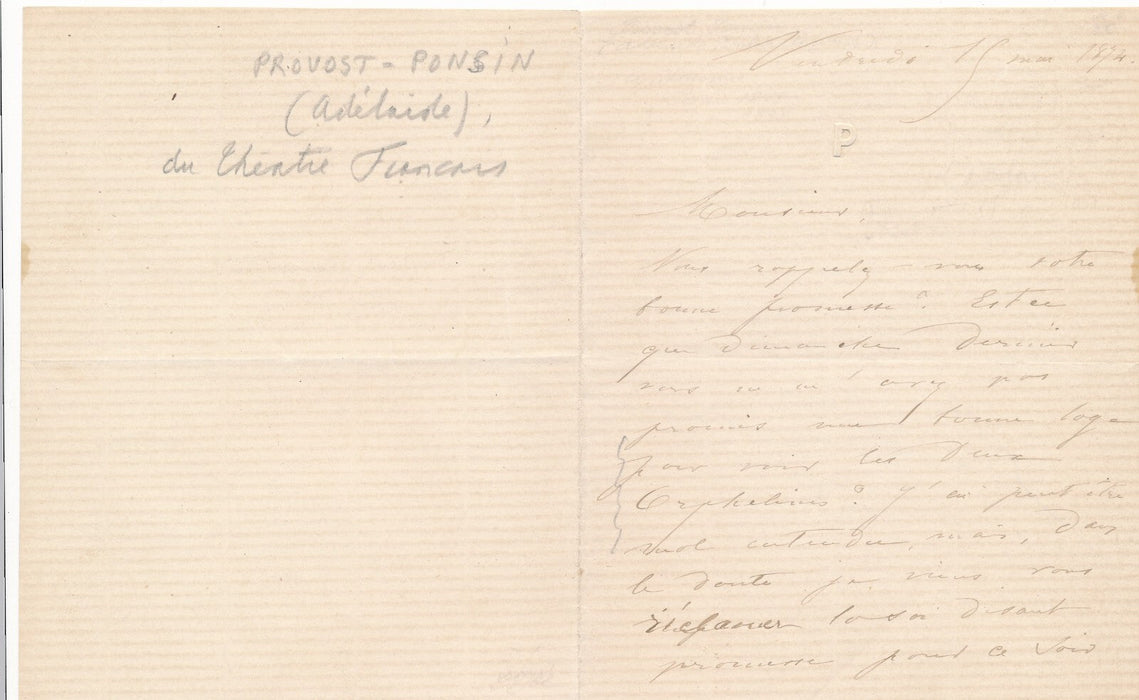 PROVOST - PONSIN
(Adélaide),
du Théatre Francais
Vendredi 15 mai 1874.
P
Monsieur,
Vous rappelez-vous votre
bonne promesse ? Est ce
que Dimanche dernier
vous ne m'avez pas
promis une bonne loge
pour voir les Deux
Orphelines ? J'ai peut être
mal entendu, mais, dans
le doute je viens vous
réclamer la soi disant
promesse pour ce soir